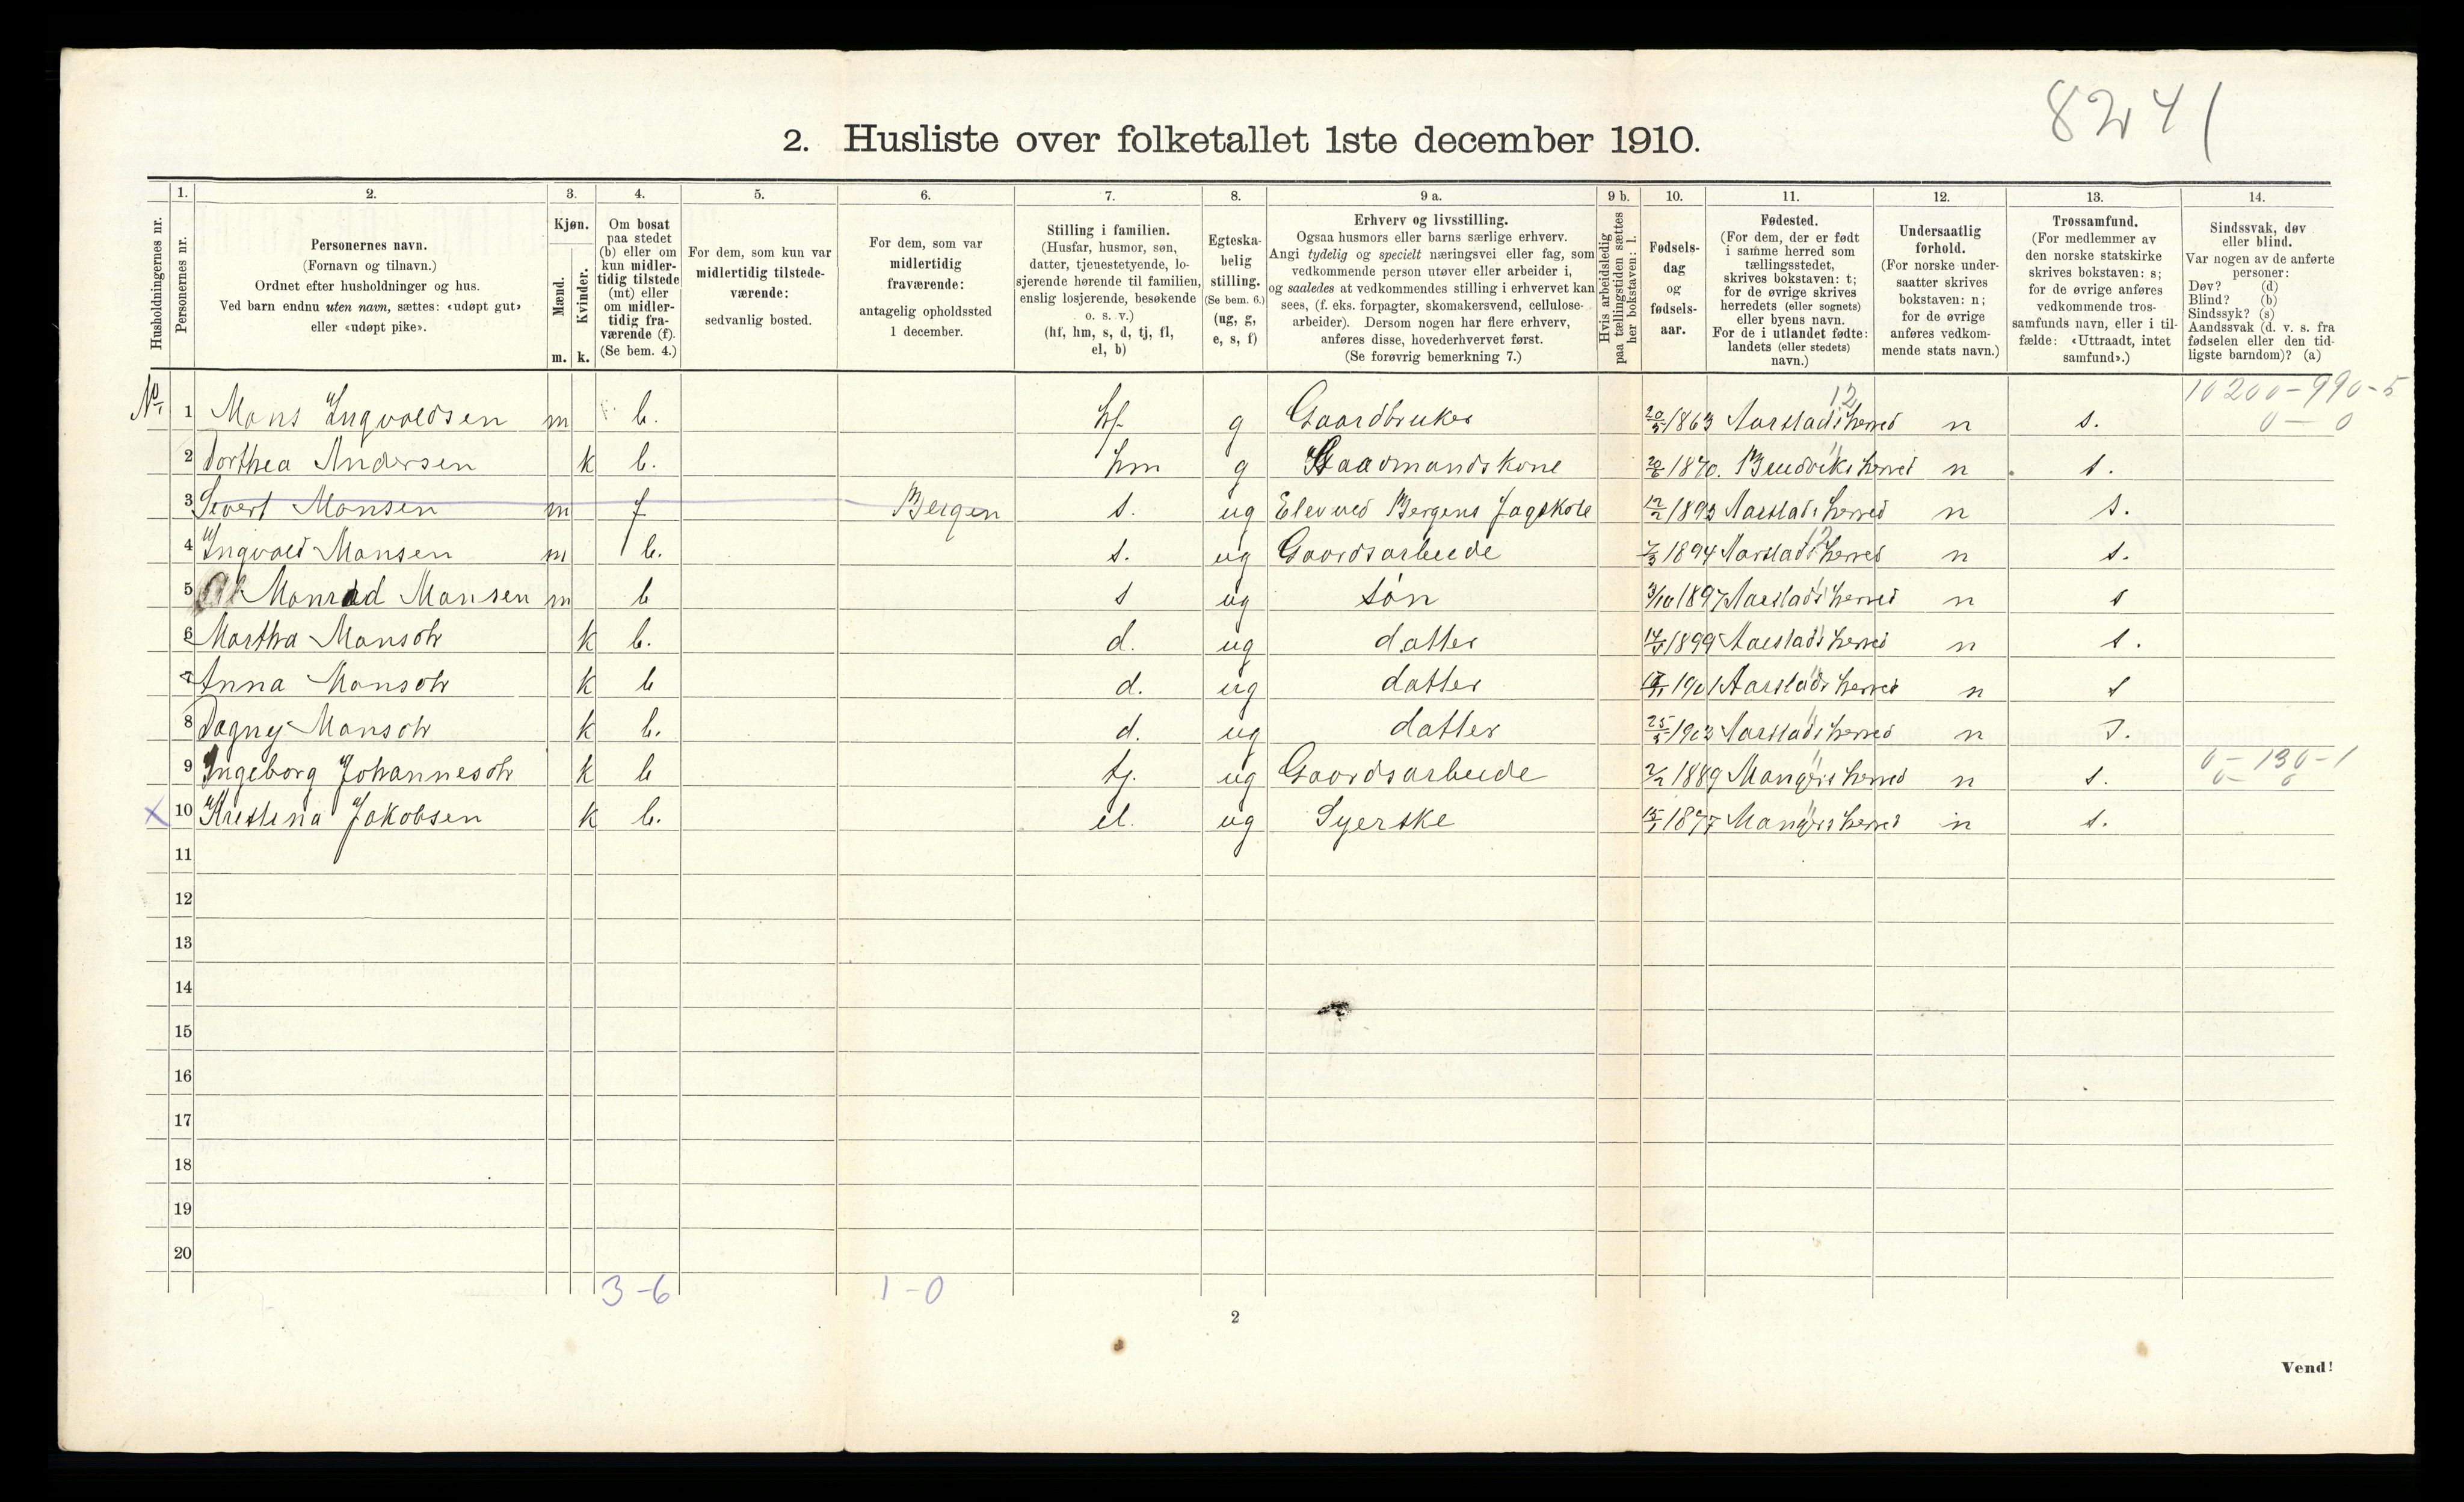 8241
2. Husliste over folketallet 1ste december 1910.
Husholdningernes nr.
1. Personernes nr.
2. Personernes navn. (Fornavn og tilnavn.) Ordnet efter husholdninger og hus. Ved barn endnu uten navn, sættes: «udøpt gut» eller «udøpt pike».
3. Kjøn. Mænd. m. Kvinder. k.
4. Om bosat paa stedet (b) eller om kun midlertidig tilstede (mt) eller om midlertidig fraværende (f). (Se bem. 4.)
5. For dem, som kun var midlertidig tilstedeværende: sedvanlig bosted.
6. For dem, som var midlertidig fraværende: antagelig opholdssted 1 december.
7. Stilling i familien. (Husfar, husmor, søn, datter, tjenestetyende, losjerende hørende til familien, enslig losjerende, besøkende o. s. v.) (hf, hm, s, d, tj, fl, el, b)
8. Egteskabelig stilling. (Se bem. 6.) (ug, g, e, s, f)
9 a. Erhverv og livsstilling. Ogsaa husmors eller barns særlige erhverv. Angi tydelig og specielt næringsvei eller fag, som vedkommende person utøver eller arbeider i, og saaledes at vedkommendes stilling i erhvervet kan sees, (f. eks. forpagter, skomakersvend, cellulosearbeider). Dersom nogen har flere erhverv, anføres disse, hovederhvervet først. (Se forøvrig bemerkning 7.)
9 b. Hvis arbeidsledig paa tællingstiden sættes her bokstaven: l.
10. Fødselsdag og fødselsaar.
11. Fødested. (For dem, der er født i samme herred som tællingsstedet, skrives bokstaven: t; for de øvrige skrives herredets (eller sognets) eller byens navn. For de i utlandet fødte: landets (eller stedets) navn.)
12. Undersaatlig forhold. (For norske undersaatter skrives bokstaven: n; for de øvrige anføres vedkommende stats navn.)
13. Trossamfund. (For medlemmer av den norske statskirke skrives bokstaven: s; for de øvrige anføres vedkommende trossamfunds navn, eller i tilfælde: «Uttraadt, intet samfund».)
14. Sindssvak, døv eller blind. Var nogen av de anførte personer: Døv? (d) Blind? (b) Sindssyk? (s) Aandssvak (d. v. s. fra fødselen eller den tidligste barndom)? (a)
12 10200-990-5
No. 1 Mons Ingvoldsen m b. hf. g Gaardbruker 20/5 1863 Aarstads herred n s. 0 - 0
2 Dorthea Andersen k b. hm g Gaardmandskone 20/6 1870. herred n s.
3 Sivert Monsen m f Bergen s. ug Elev ved Bergens Fagskole 12/2 1893 Aarstads herred n s.
4 Ingvald Monsen m b. s. ug Gaardsarbeide 7/3 1894 Aarstads herred n s.
5 Monrad Monsen m b s ug søn 3/10 1897 Aarstads herred n s
6 Martha Monsdtr k b. d. ug datter 1899 Aarstads herred n s.
7 Anna Monsdtr k b d. ug datter 1901 Aarstads herred n s
8 Dagny Monsdtr k b. d. ug datter 25/5 1903 Aarstads herred n s.
9 Ingeborg Johannesdtr k b tj. ug Gaardsarbeide 2/2 1889 Mangers herred n s. 0-130-1
0- 0
x 10 Kristina Jakobsen k b. el. ug Syerske 15/1 1877 Mangers herred n s.
11
12
13
14
15
16
17
18
19
20
3-6 1-0
2
Vend!